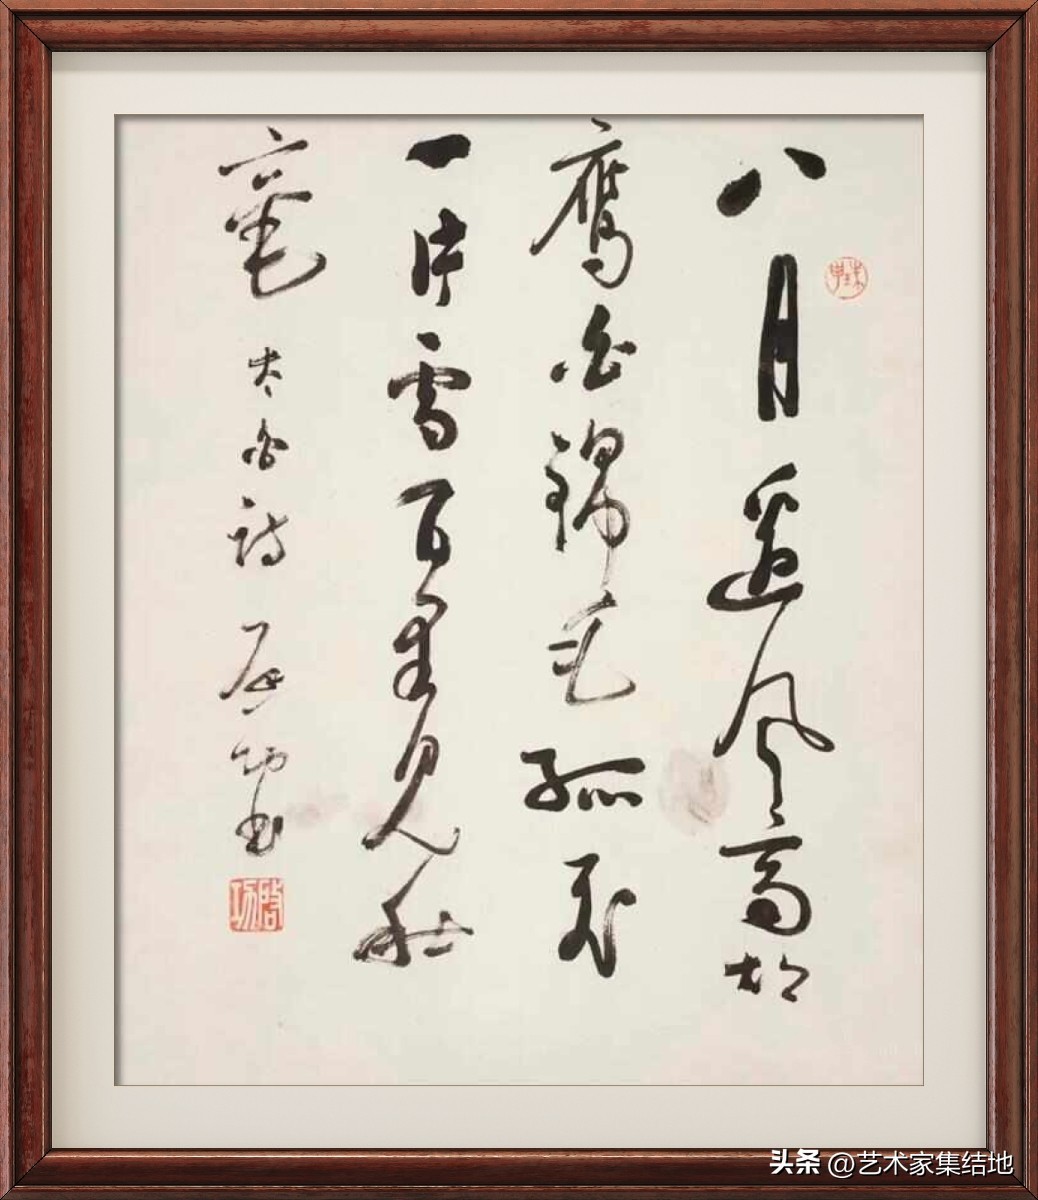 珠申
八月邊風高胡
鷹白錦毛孤飛
一片雪百里見秋
毫 太白詩 啟功書
啟功
头条 @艺术家集结地